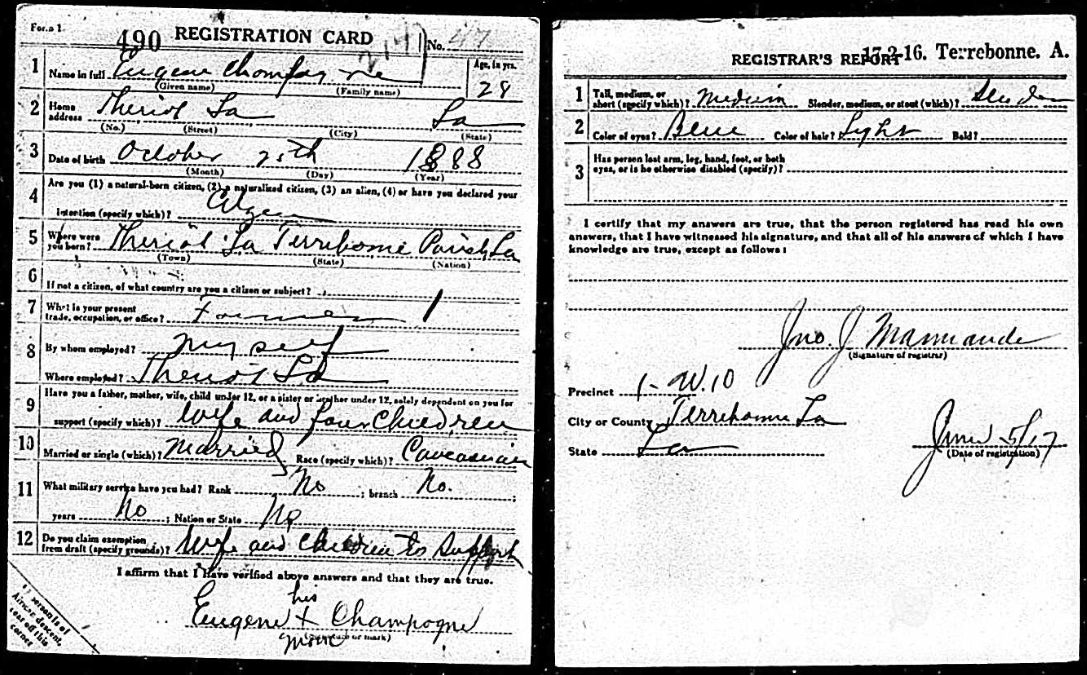 Form 1
490 REGISTRATION CARD No. 47
217
1 Name in full Eugene Champagne Age, in yrs.
(Given name) (Family name) 28
2 Home address Theriot La La
(No.) (Street) (City) (State)
3 Date of birth October 25th 1888
(Month) (Day) (Year)
4 Are you (1) a natural-born citizen, (2) a naturalized citizen, (3) an alien, (4) or have you declared your
intention (specify which)? Citizen
5 Where were you born? Theriot La Terrebonne Parish La
(Town) (State) (Nation)
6 If not a citizen, of what country are you a citizen or subject?
7 What is your present trade, occupation, or office? Farmer 1
8 By whom employed? Myself
Where employed? Theriot La
9 Have you a father, mother, wife, child under 12, or a sister or brother under 12, solely dependent on you for
support (specify which)? Wife and four Children
10 Married or single (which)? Married Race (specify which)? Caucasian
11 What military service have you had? Rank No ; branch No. ;
years No ; Nation or State No
12 Do you claim exemption from draft (specify grounds)? Wife and Children to Support
I affirm that I have verified above answers and that they are true.
his
Eugene x Champagne
(Signature or mark)
mark
If person is of
African descent,
tear off this
corner
REGISTRAR'S REPORT 17-2-16. Terrebonne. A.
1 Tall, medium, or short (specify which)? Medium Slender, medium, or stout (which)? Slender
2 Color of eyes? Blue Color of hair? Light Bald?
3 Has person lost arm, leg, hand, foot, or both
eyes, or is he otherwise disabled (specify)?
I certify that my answers are true, that the person registered has read his own
answers, that I have witnessed his signature, and that all of his answers of which I have
knowledge are true, except as follows:
Jno. J
(Signature of registrar)
Precinct 1 - W.10
City or County Terrebonne La
State La
June 5/17
(Date of registration)